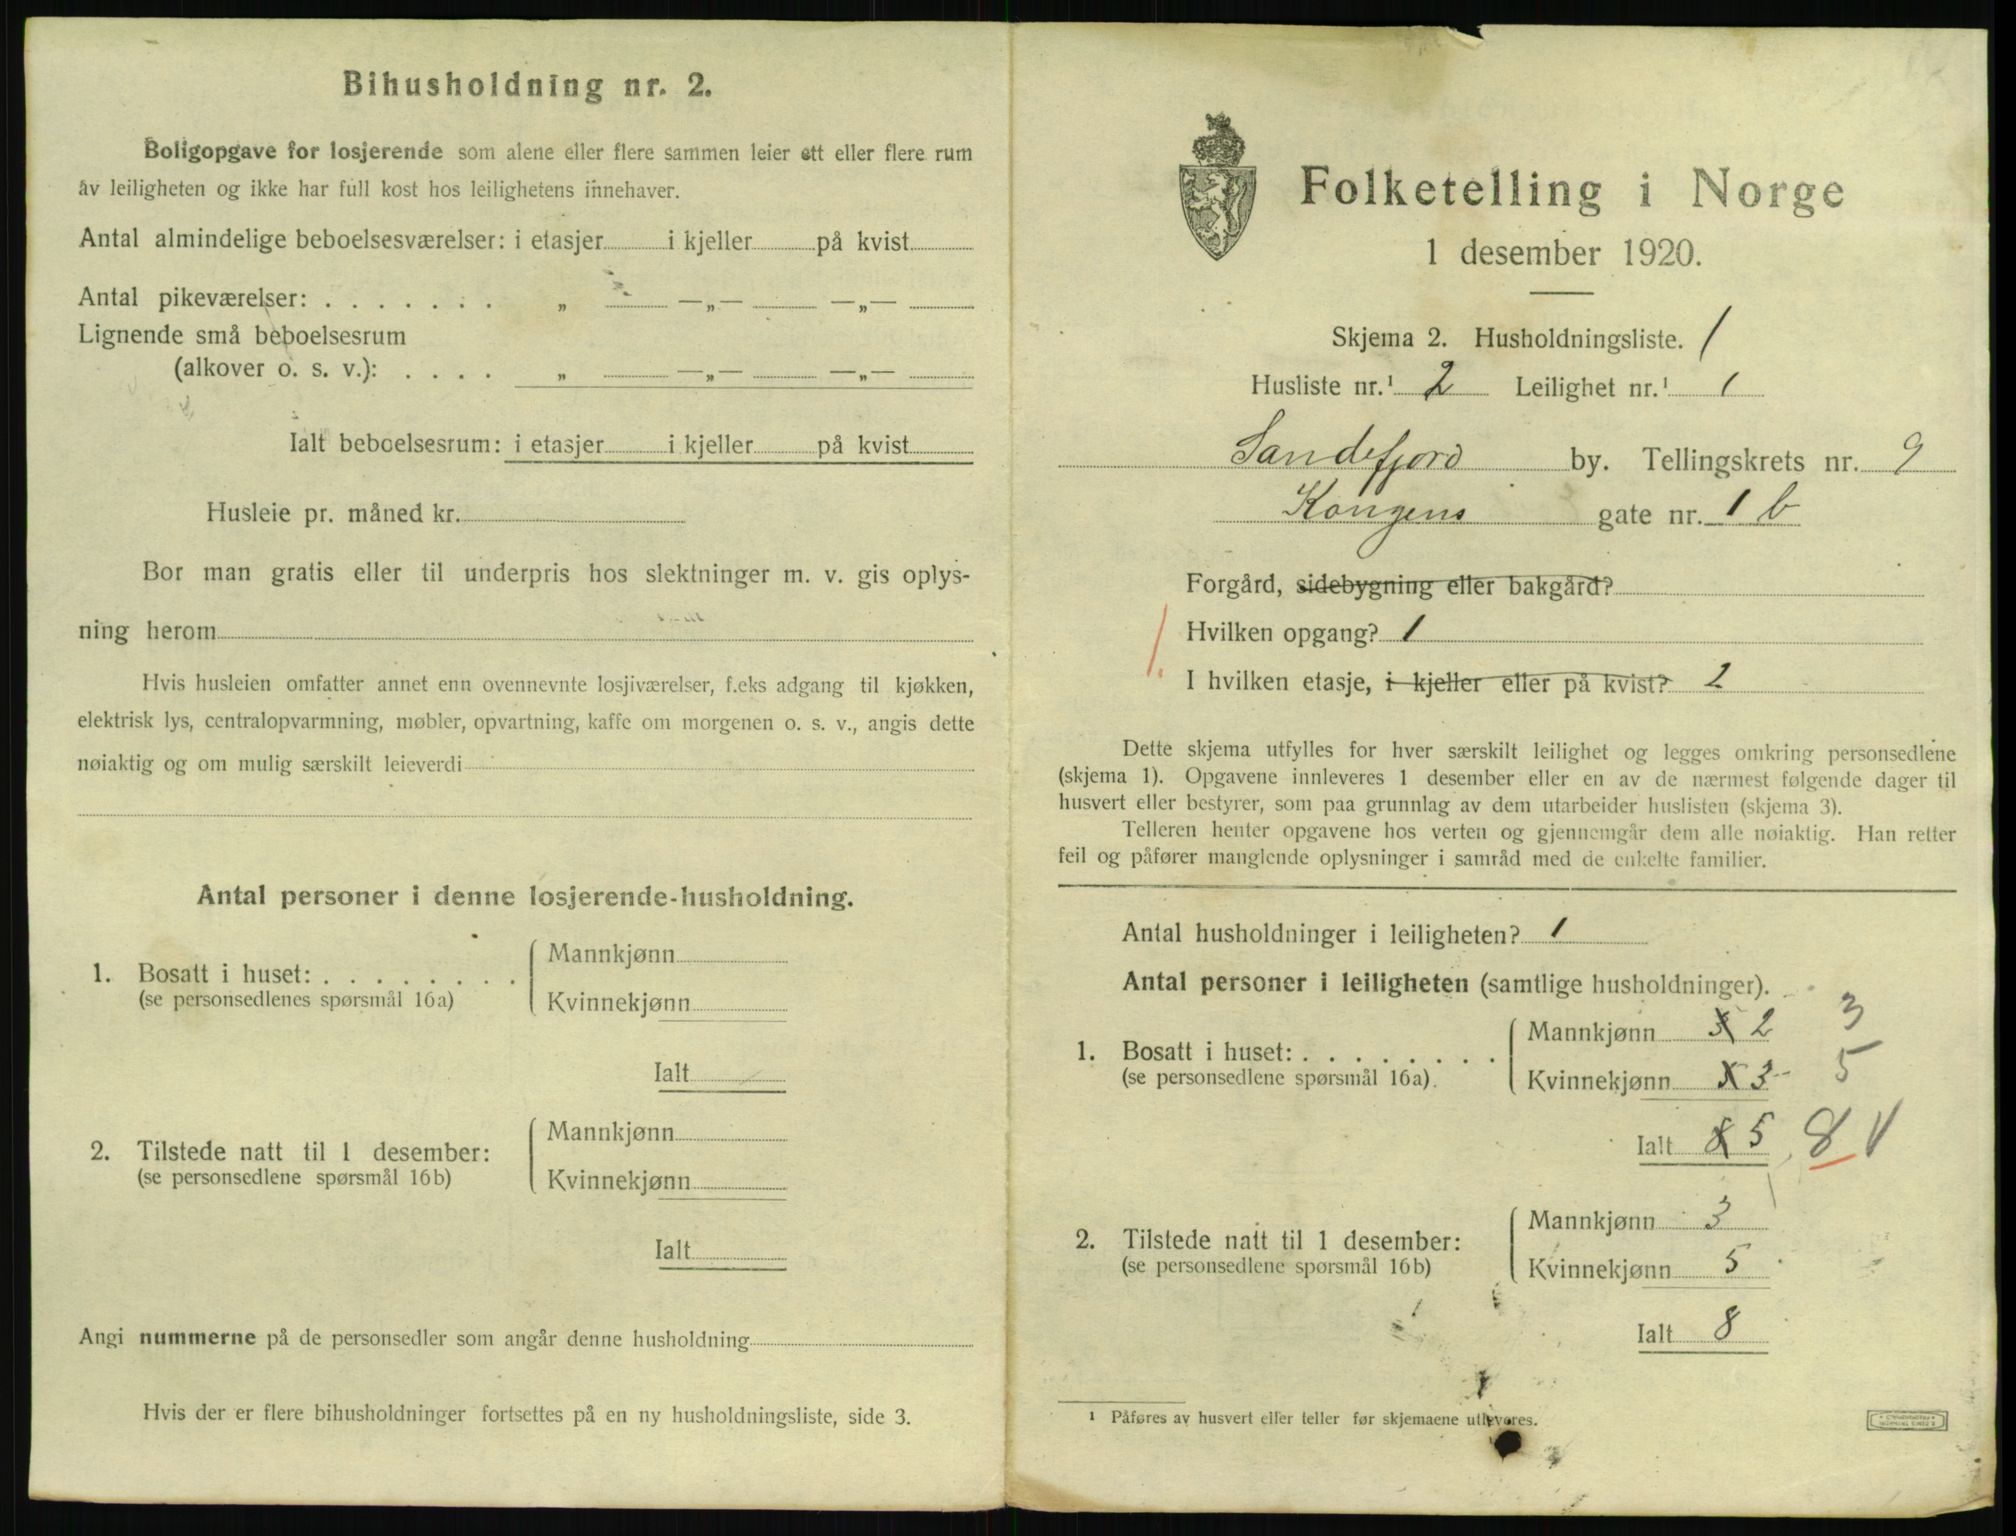 Bihusholdning nr. 2.
Boligopgave for losjerende som alene eller flere sammen leier ett eller flere rum
av leiligheten og ikke har full kost hos leilighetens innehaver.
Antal almindelige beboelsesværelser: i etasjer i kjeller på kvist
Antal pikeværelser: . . . . . . . „ —„— —„—
Lignende små beboelsesrum
(alkover o. s. v.): . . . . „ —„— —„—
Ialt beboelsesrum: i etasjer i kjeller på kvist
Husleie pr. måned kr.
Bor man gratis eller til underpris hos slektninger m. v. gis oplys-
ning herom
Hvis husleien omfatter annet enn ovennevnte losjiværelser, f.eks adgang til kjøkken,
elektrisk lys, centralopvarmning, møbler, opvartning, kaffe om morgenen o. s. v., angis dette
nøiaktig og om mulig særskilt leieverdi
Antal personer i denne losjerende-husholdning.
1. Bosatt i huset: . . . . . . . .
(se personsedlenes spørsmål 16a)
Mannkjønn
Kvinnekjønn
Ialt
2. Tilstede natt til 1 desember:
(se personsedlene spørsmål 16b)
Mannkjønn
Kvinnekjønn
Ialt
Angi nummerne på de personsedler som angår denne husholdning
Hvis der er flere bihusholdninger fortsettes på en ny husholdningsliste, side 3.
Folketelling i Norge
1 desember 1920.
Skjema 2. Husholdningsliste. 1
Husliste nr.¹ 2 Leilighet nr.¹ 1
Sandefjord by. Tellingskrets nr. 9
Kongens gate nr. 1 b
Forgård, sidebygning eller bakgård?
1. Hvilken opgang? 1
I hvilken etasje, i kjeller eller på kvist? 2
Dette skjema utfylles for hver særskilt leilighet og legges omkring personsedlene
(skjema 1). Opgavene innleveres 1 desember eller en av de nærmest følgende dager til
husvert eller bestyrer, som paa grunnlag av dem utarbeider huslisten (skjema 3).
Telleren henter opgavene hos verten og gjennemgår dem alle nøiaktig. Han retter
feil og påfører manglende oplysninger i samråd med de enkelte familier.
Antal husholdninger i leiligheten? 1
Antal personer i leiligheten (samtlige husholdninger).
1. Bosatt i huset: . . . . . . . .
(se personsedlene spørsmål 16a).
Mannkjønn 3 2 3
Kvinnekjønn 3- 5
Ialt 8 5 8
2. Tilstede natt til 1 desember:
(se personsedlene spørsmål 16b)
Mannkjønn 3
Kvinnekjønn 5
Ialt 8
¹ Påføres av husvert eller teller før skjemaene utleveres.